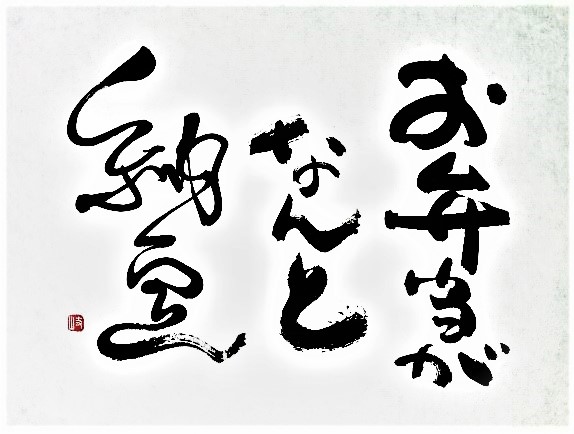 お弁当が
なんと
納豆